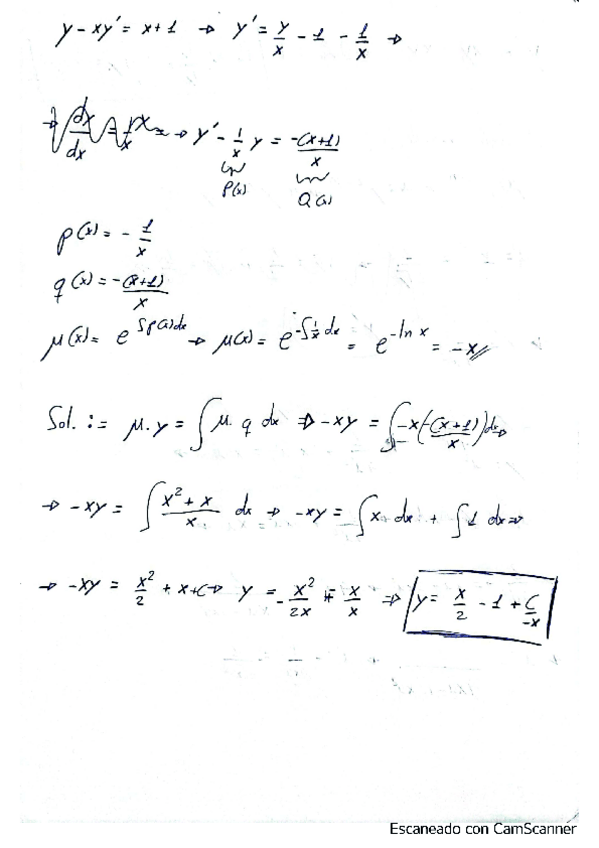 y - xy' = x+1 → y' = y/x - 1 - 1/x →
→ y' - 1/x y = -(x+1)/x
P(x) Q(x)
p(x) = - 1/x
q(x) = -(x+1)/x
μ(x) = e^∫p(x)dx → μ(x) = e^-∫1/x dx = e^-ln x = -x//
Sol. := μ.y = ∫ μ. q dx ⇒ -xy = ∫ -x(-(x+1)/x) dx →
→ -xy = ∫ x²+x/x dx → -xy = ∫ x dx + ∫ 1 dx ⇒
→ -xy = x²/2 + x+C → y = - x²/2x - x/x ⇒ y = x/2 - 1 + C/-x
Escaneado con CamScanner